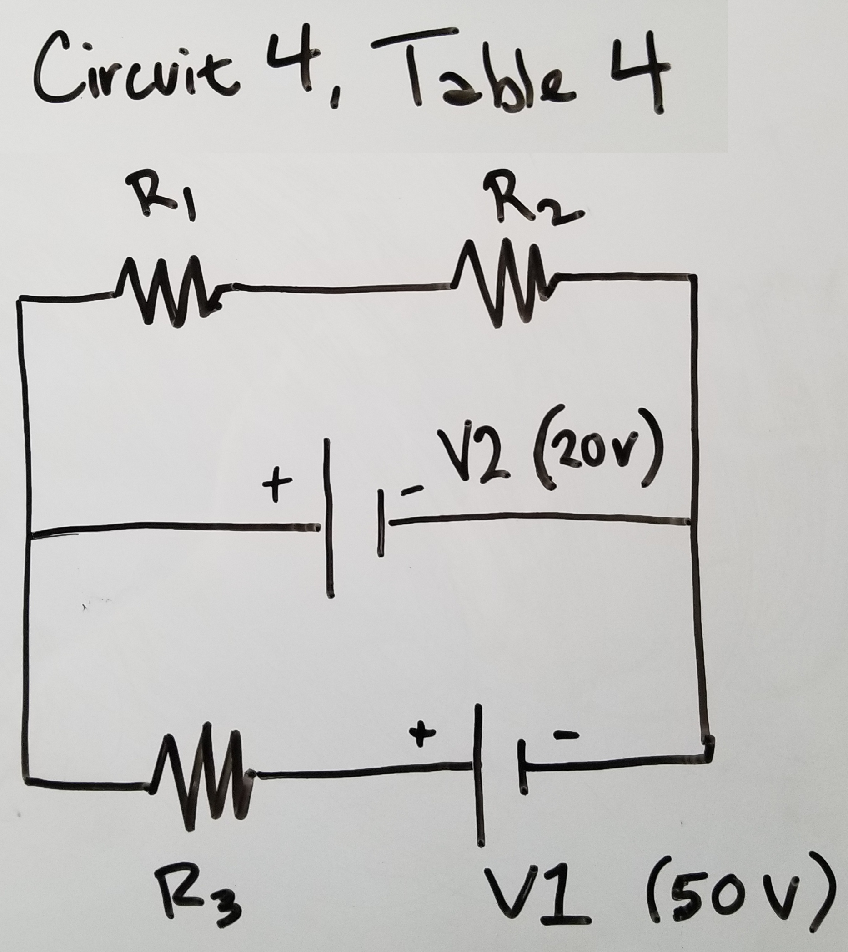 Circuit 4, Table 4
R1 R2
+ - V2 (20V)
+ -
R3 V1 (50V)